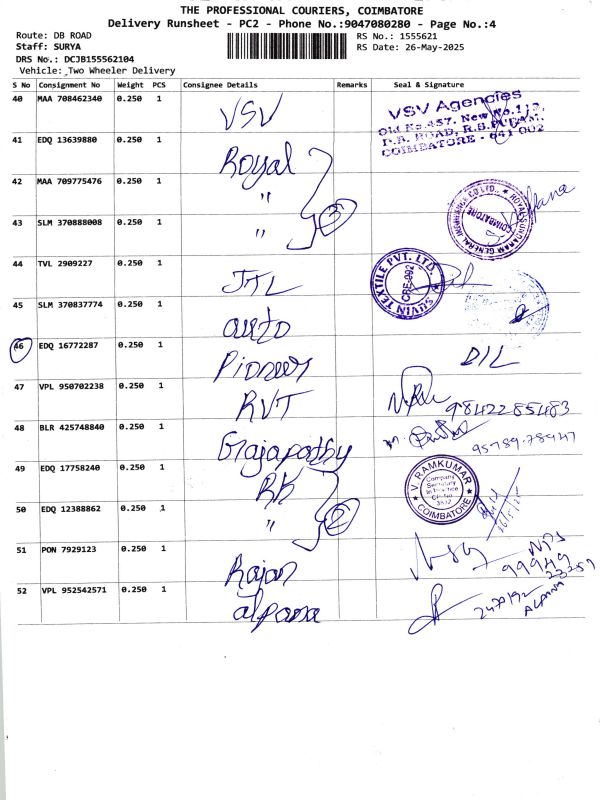 THE PROFESSIONAL COURIERS, COIMBATORE
Delivery Runsheet - PC2 - Phone No.:9047080280 - Page No.:4
Route: DB ROAD
RS No.: 1555621
Staff: SURYA
RS Date: 26-May-2025
DRS No.: DCJB155562104
Vehicle: Two Wheeler Delivery
S No Consignment No Weight PCS Consignee Details Remarks Seal & Signature
40 MAA 708462340 0.250 1 VSV
VSV Agencies
Old No.457, New No.112,
D.B. ROAD, R.S.PURAM,
COIMBATORE - 641 002
41 EDQ 13639880 0.250 1 Royal
42 MAA 709775476 0.250 1 "
43 SLM 370888008 0.250 1 " 3
ROYAL SUNDARAM GENERAL INSURANCE CO LTD.,
COIMBATORE
44 TVL 2909227 0.250 1 JTL
SHUVIN TEXTILE PVT. LTD.
CBE-002
45 SLM 370837774 0.250 1 auto
46 EDQ 16772287 0.250 1 Pioneer DIL
47 VPL 950702238 0.250 1 RVT 98422 85483
48 BLR 425748840 0.250 1 Gajapathy 95789-78947
49 EDQ 17758240 0.250 1 RK
V. RAMKUMAR
Company
Secretary
In Practice
CP No.
COIMBATORE
50 EDQ 12388862 0.250 1 " 2
26/5/25
51 PON 7929123 0.250 1 Rajan
NPS
99949
23259
52 VPL 952542571 0.250 1 alpana
ALPANA